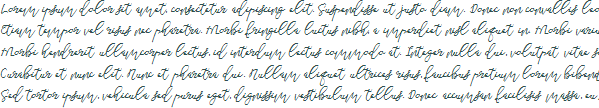 Lorem ipsum dolor sit amet, consectetur adipiscing elit. Suspendisse ut justo diam. Donec non convallis leo
Etiam tempor vel risus nec pharetra. Morbi fringilla luctus nibh, a imperdiet nisl aliquet in. Morbi
Morbi hendrerit ullamcorper lectus, id interdum lectus commodo at. Integer nulla dui, volutpat vitae
Curabitur et nunc elit. Nunc et pharetra dui. Nullam aliquet ultrices risus, faucibus pretium lorem
Sed tortor ipsum, vehicula sed purus eget, dignissim vestibulum tellus. Donec accumsan facilisis massa, eu